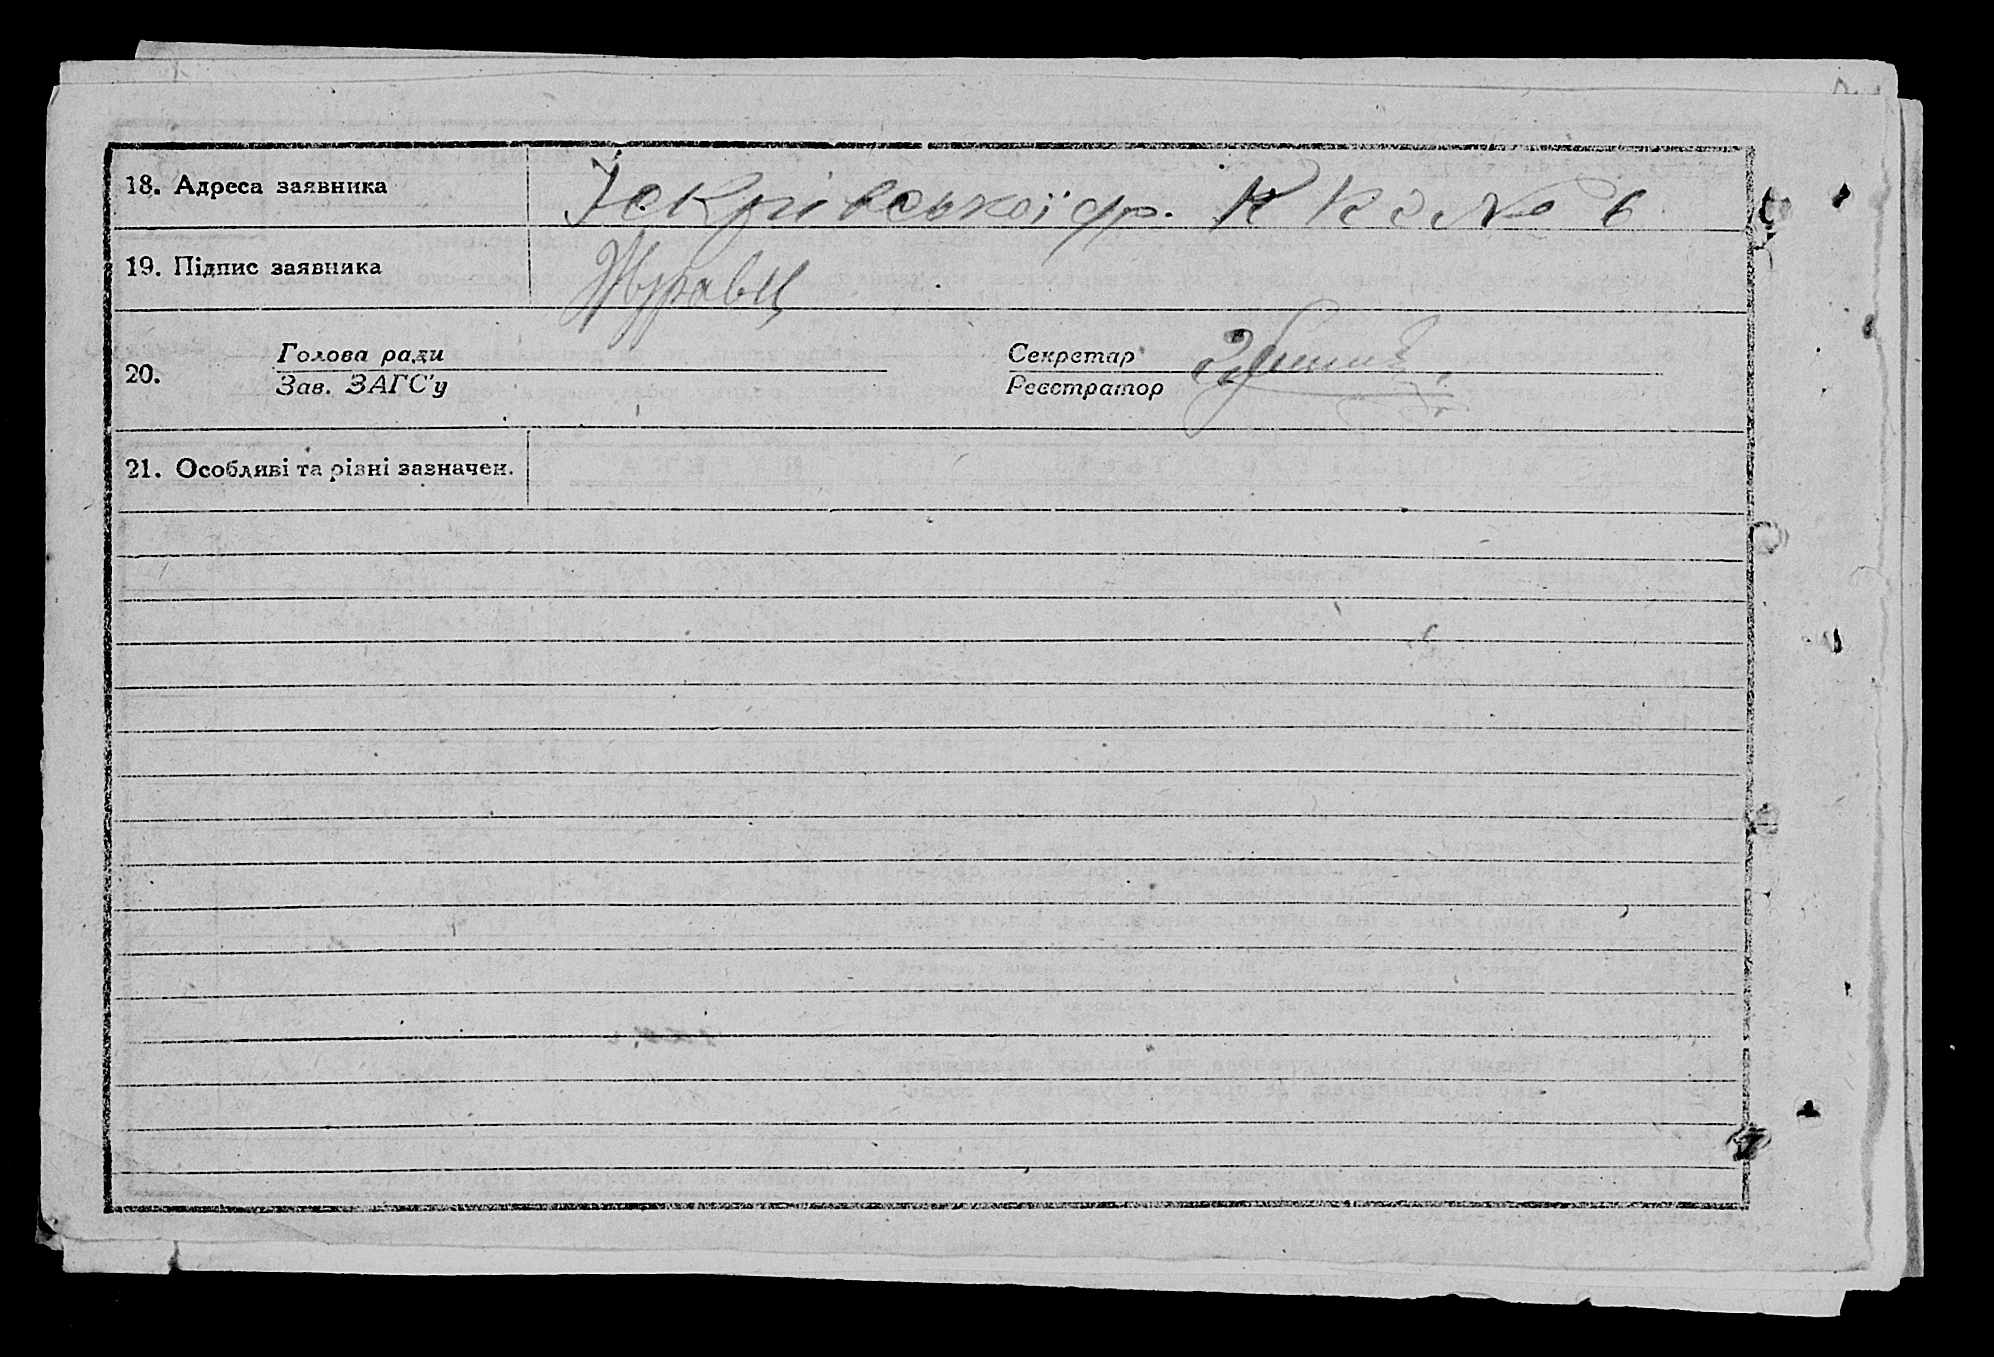 18. Адреса заявника Іскрівської ф. К К З № 6
19. Підпис заявника Журавц
20. Голова ради Секретар
Зав. ЗАГС'у Реєстратор
21. Особливі та різні зазначен.